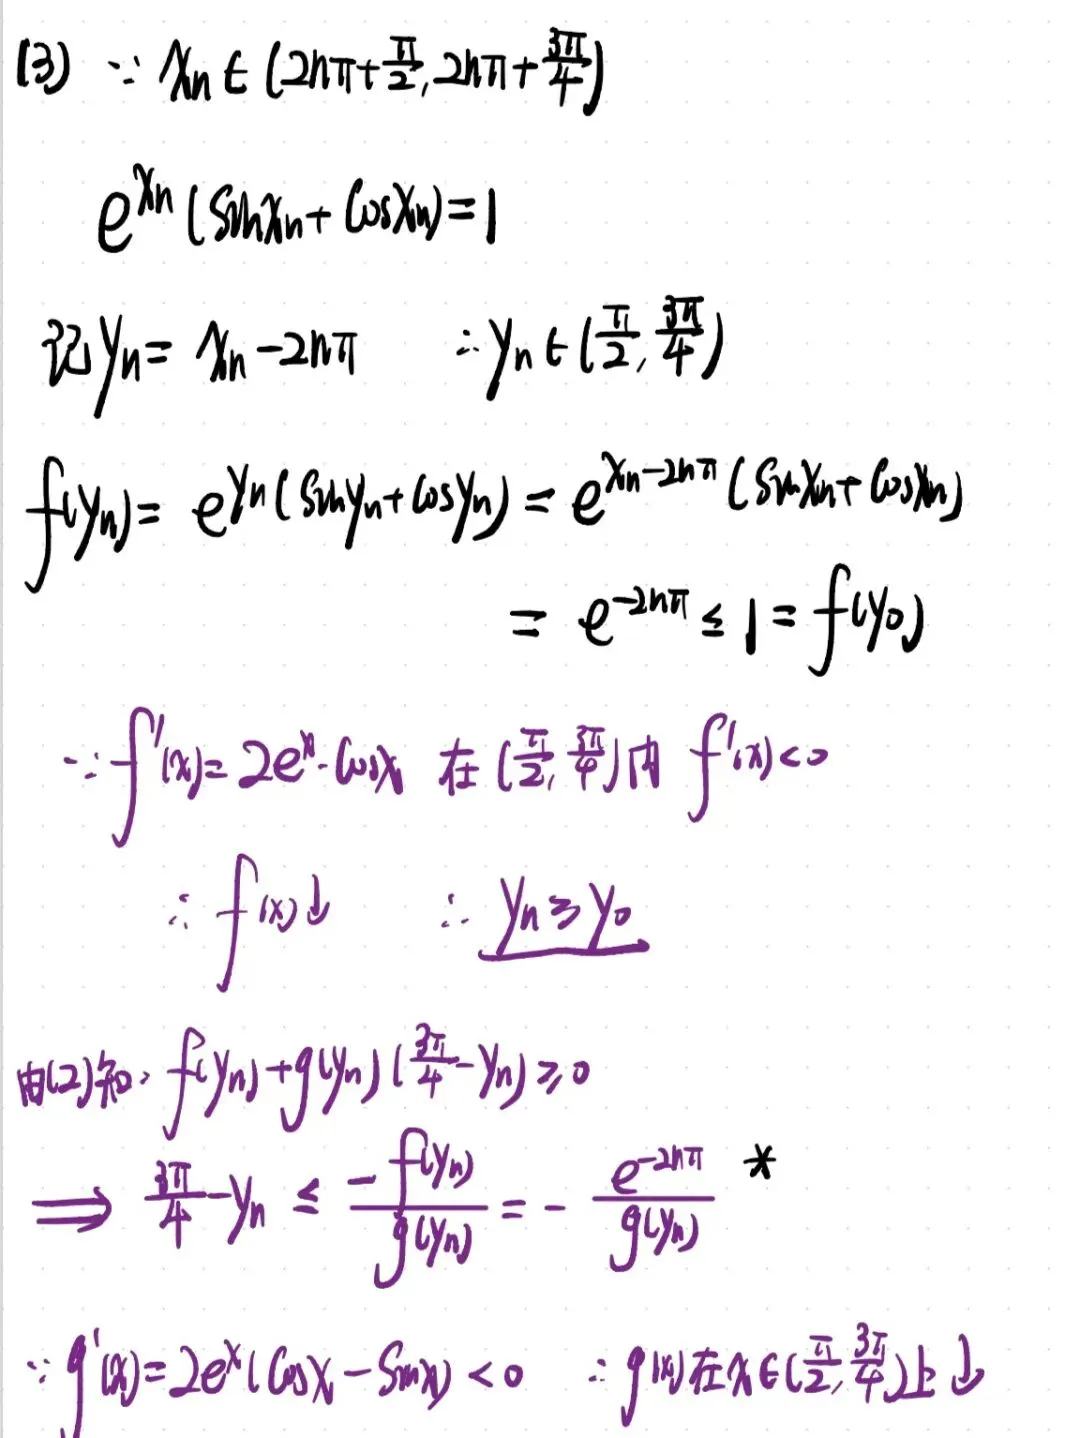 (3) ∵ xₙ ∈ (2nπ+π/2, 2nπ+3π/4)
e^{xₙ}(sinxₙ+cosxₙ)=1
记yₙ= xₙ-2nπ ∴yₙ∈(π/2, 3π/4)
f(yₙ)= e^{yₙ}(sinyₙ+cosyₙ) = e^{xₙ-2nπ}(sinxₙ+cosxₙ)
= e^{-2nπ} ≤ 1 = f(y₀)
∵ f'(x)=2e^x·cosx 在(π/2, 3π/4)内 f'(x)<0
∴ f(x)↓ ∴ yₙ≥y₀
由(2)知, f(yₙ)+g(yₙ)(3π/4-yₙ)≥0
⟹ 3π/4-yₙ ≤ -f(yₙ)/g(yₙ) = - e^{-2nπ}/g(yₙ) *
∵ g'(x)=2e^x(cosx-sinx)<0 ∴ g(x)在x∈(π/2, 3π/4)上↓